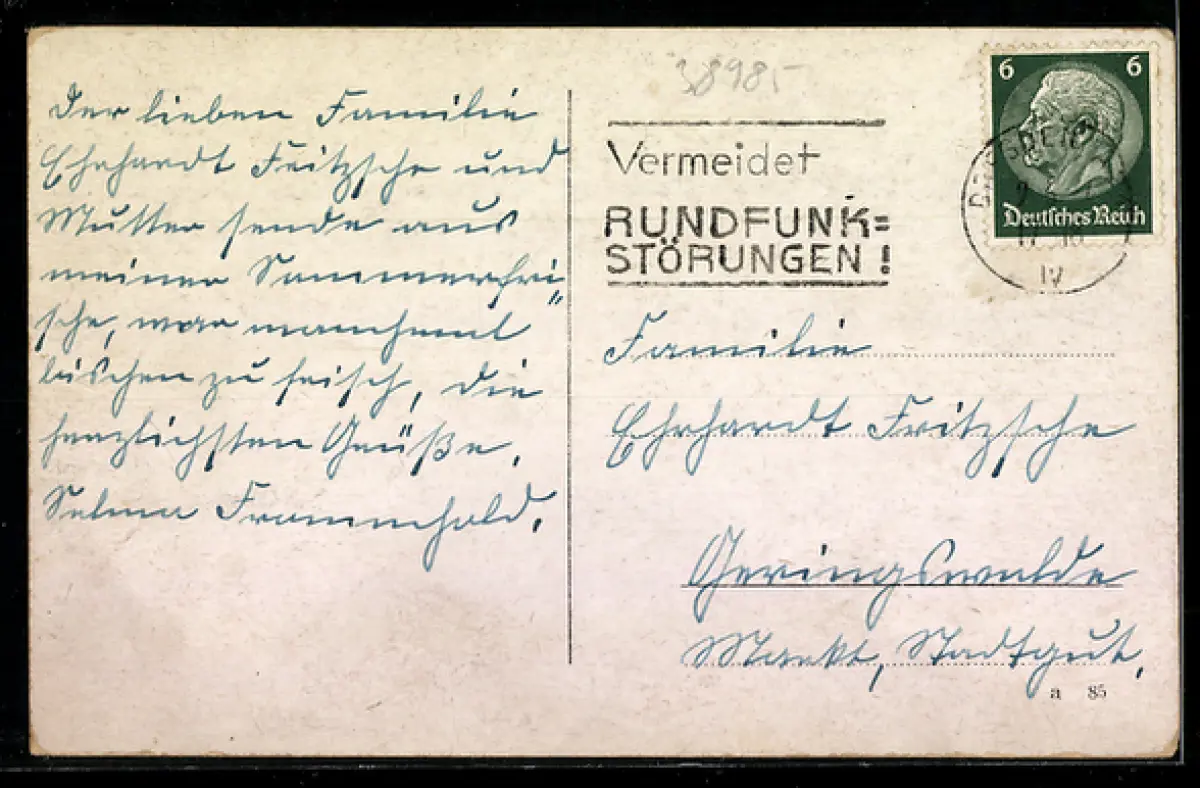 Der lieben Familie
Ehrhardt Fritzsche und
Mutter sende aus
meiner Sommerfri=
sche, war manchmal
bischen zu frisch, die
herzlichsten Grüße,
Selma Frommhold.
38985
Vermeidet
RUNDFUNK=
STÖRUNGEN!
6 6
Deutsches Reich
IV
Familie
Ehrhardt Fritzsche
Geringswalde
Markt, Stadtgut,
a 85